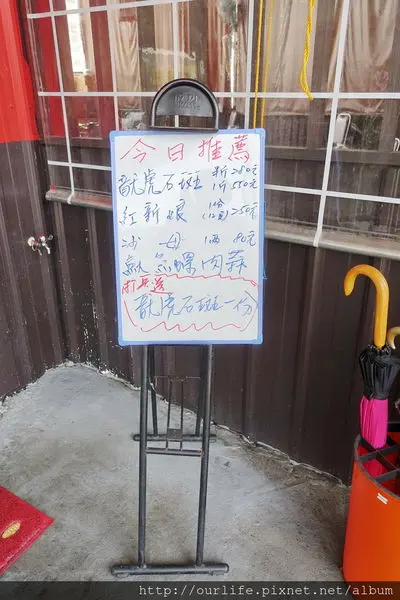 今日推薦
龍虎石斑 半斤280元
1斤550元
紅新娘 1份(12兩)250元
沙母 1兩 80元
鳳螺肉蒜
龍虎石斑一份
http://ourlife.pixnet.net/album